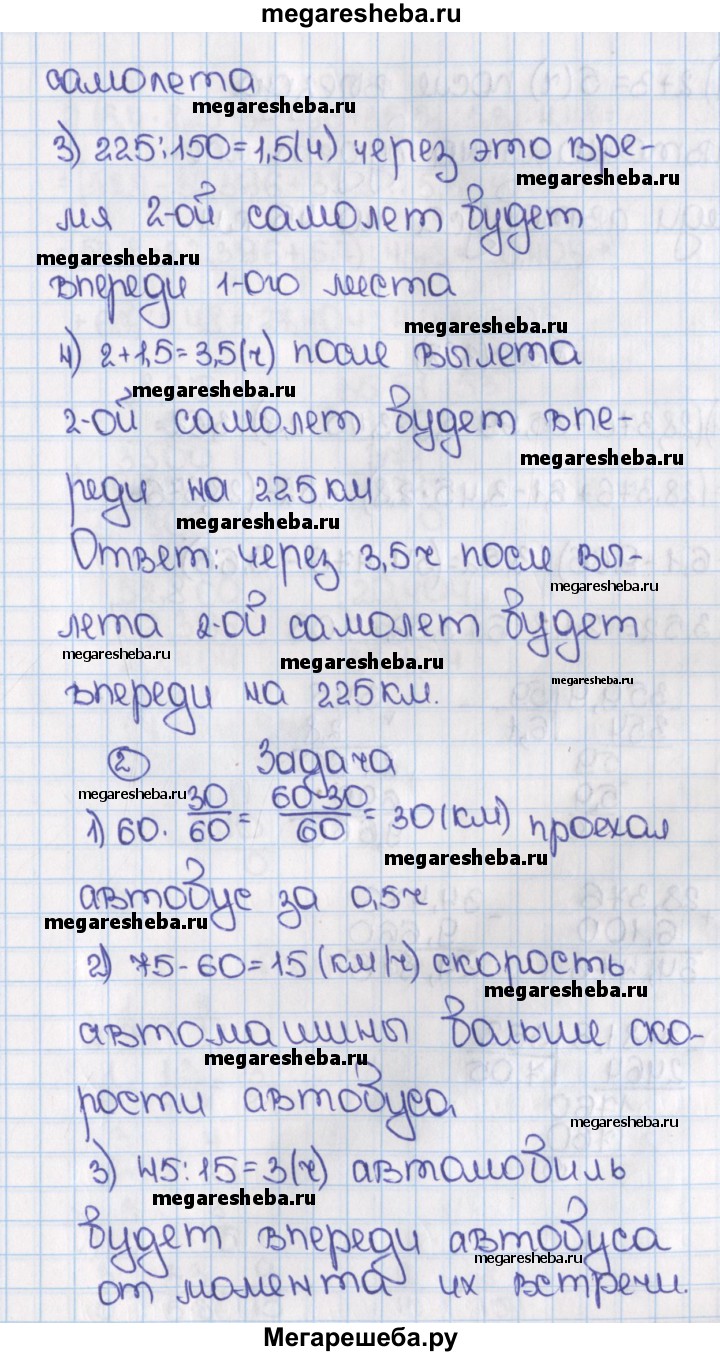 megaresheba.ru
самолета
megaresheba.ru
3) 225:150=1,5(ч) через это вре-
megaresheba.ru
мя 2-ой самолет будет
megaresheba.ru
впереди 1-ого места
megaresheba.ru
4) 2+1,5=3,5(ч) после вылета
megaresheba.ru
2-ой самолет будет впе-
megaresheba.ru
реди на 225 км
megaresheba.ru
Ответ: через 3,5ч после вы-
megaresheba.ru
лета 2-ой самолет будет
megaresheba.ru megaresheba.ru
впереди на 225 км.
megaresheba.ru
2 Задача
megaresheba.ru
1) 60·30/60=60·30/60=30(км) проехал
megaresheba.ru
автобус за 0,5ч
megaresheba.ru
2) 75-60=15(км/ч) скорость
megaresheba.ru
автомашины больше ско-
megaresheba.ru
рости автобуса
megaresheba.ru
3) 45:15=3(ч) автомобиль
megaresheba.ru
будет впереди автобуса
megaresheba.ru
от момента их встречи.
Мегарешеба.ру